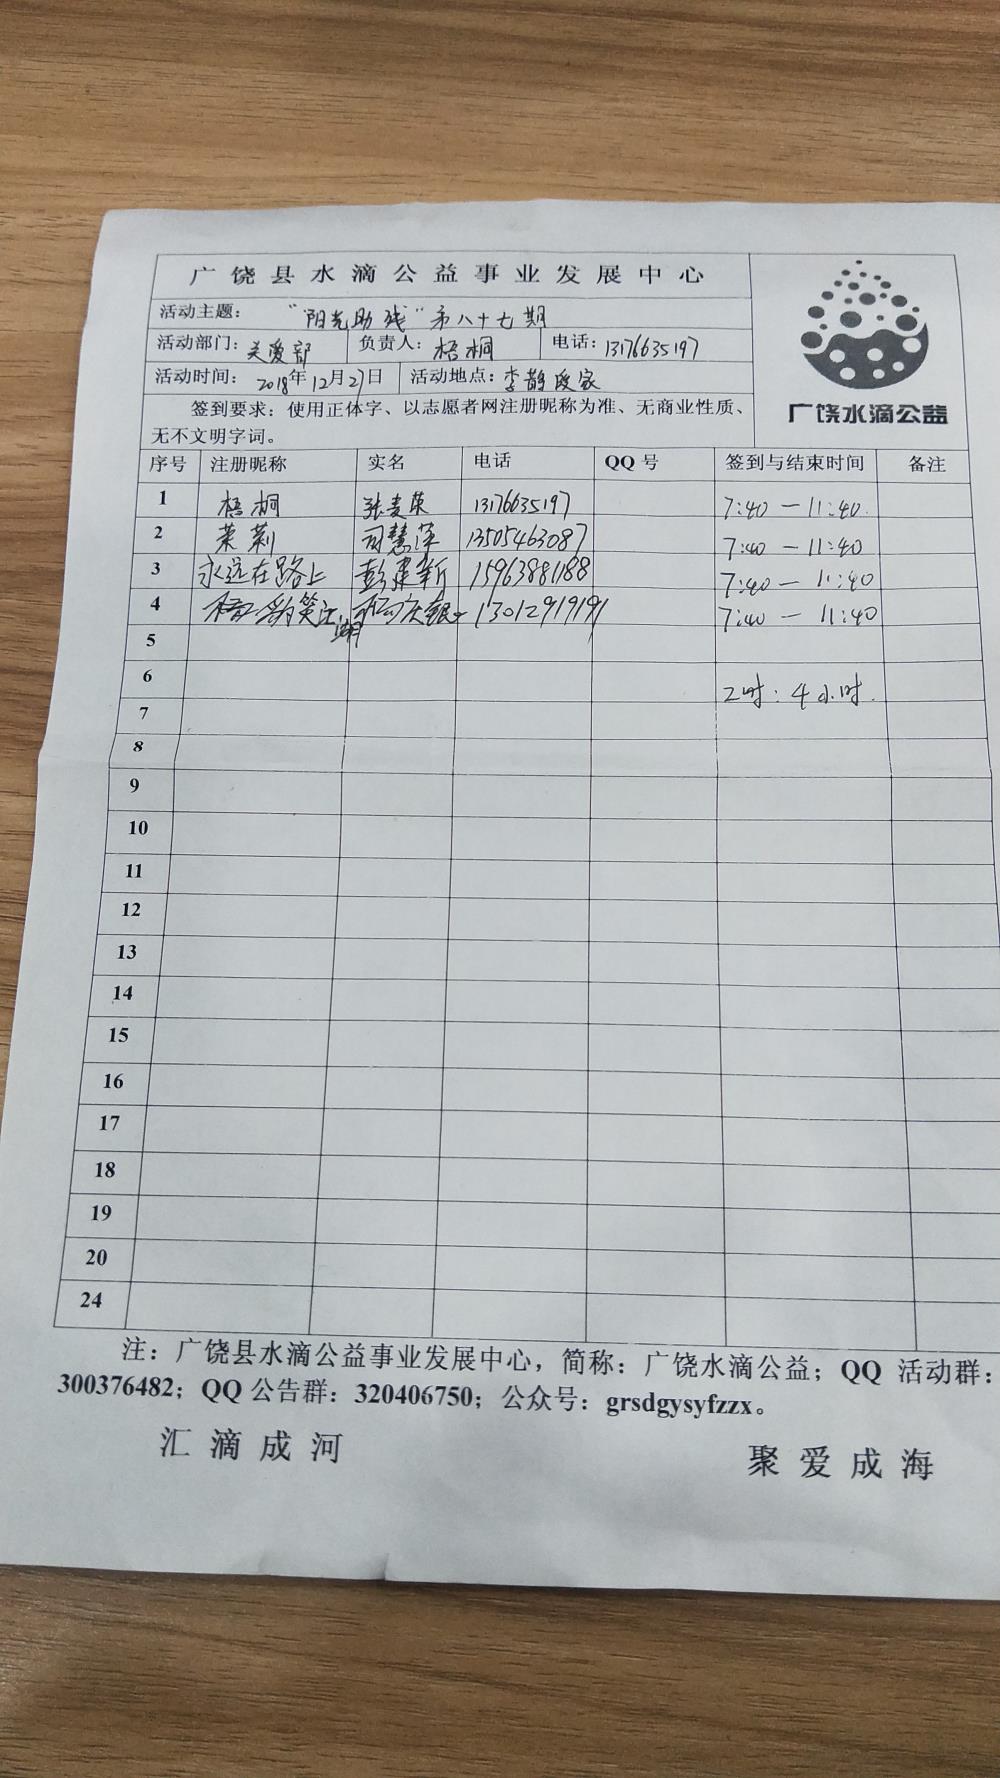 广饶县水滴公益事业发展中心
活动主题：“阳光助残”第八十七期
活动部门：关爱部 负责人：梧桐 电话：13176635197
活动时间：2018年12月27日 活动地点：李鹊段家
广饶水滴公益
签到要求：使用正体字、以志愿者网注册昵称为准、无商业性质、
无不文明字词。
序号 注册昵称 实名 电话 QQ号 签到与结束时间 备注
1 梧桐 张麦荣 13176635197 7:40 — 11:40
2 茉莉 司慧萍 13505463087 7:40 — 11:40
3 永远在路上 彭建新 15963881188 7:40 — 11:40
4 笑江湖 13012919191 7:40 — 11:40
5
6 工时：4小时
7
8
9
10
11
12
13
14
15
16
17
18
19
20
24
注：广饶县水滴公益事业发展中心，简称：广饶水滴公益；QQ 活动群：
300376482；QQ公告群：320406750；公众号：grsdgysyfzzx。
汇滴成河 聚爱成海